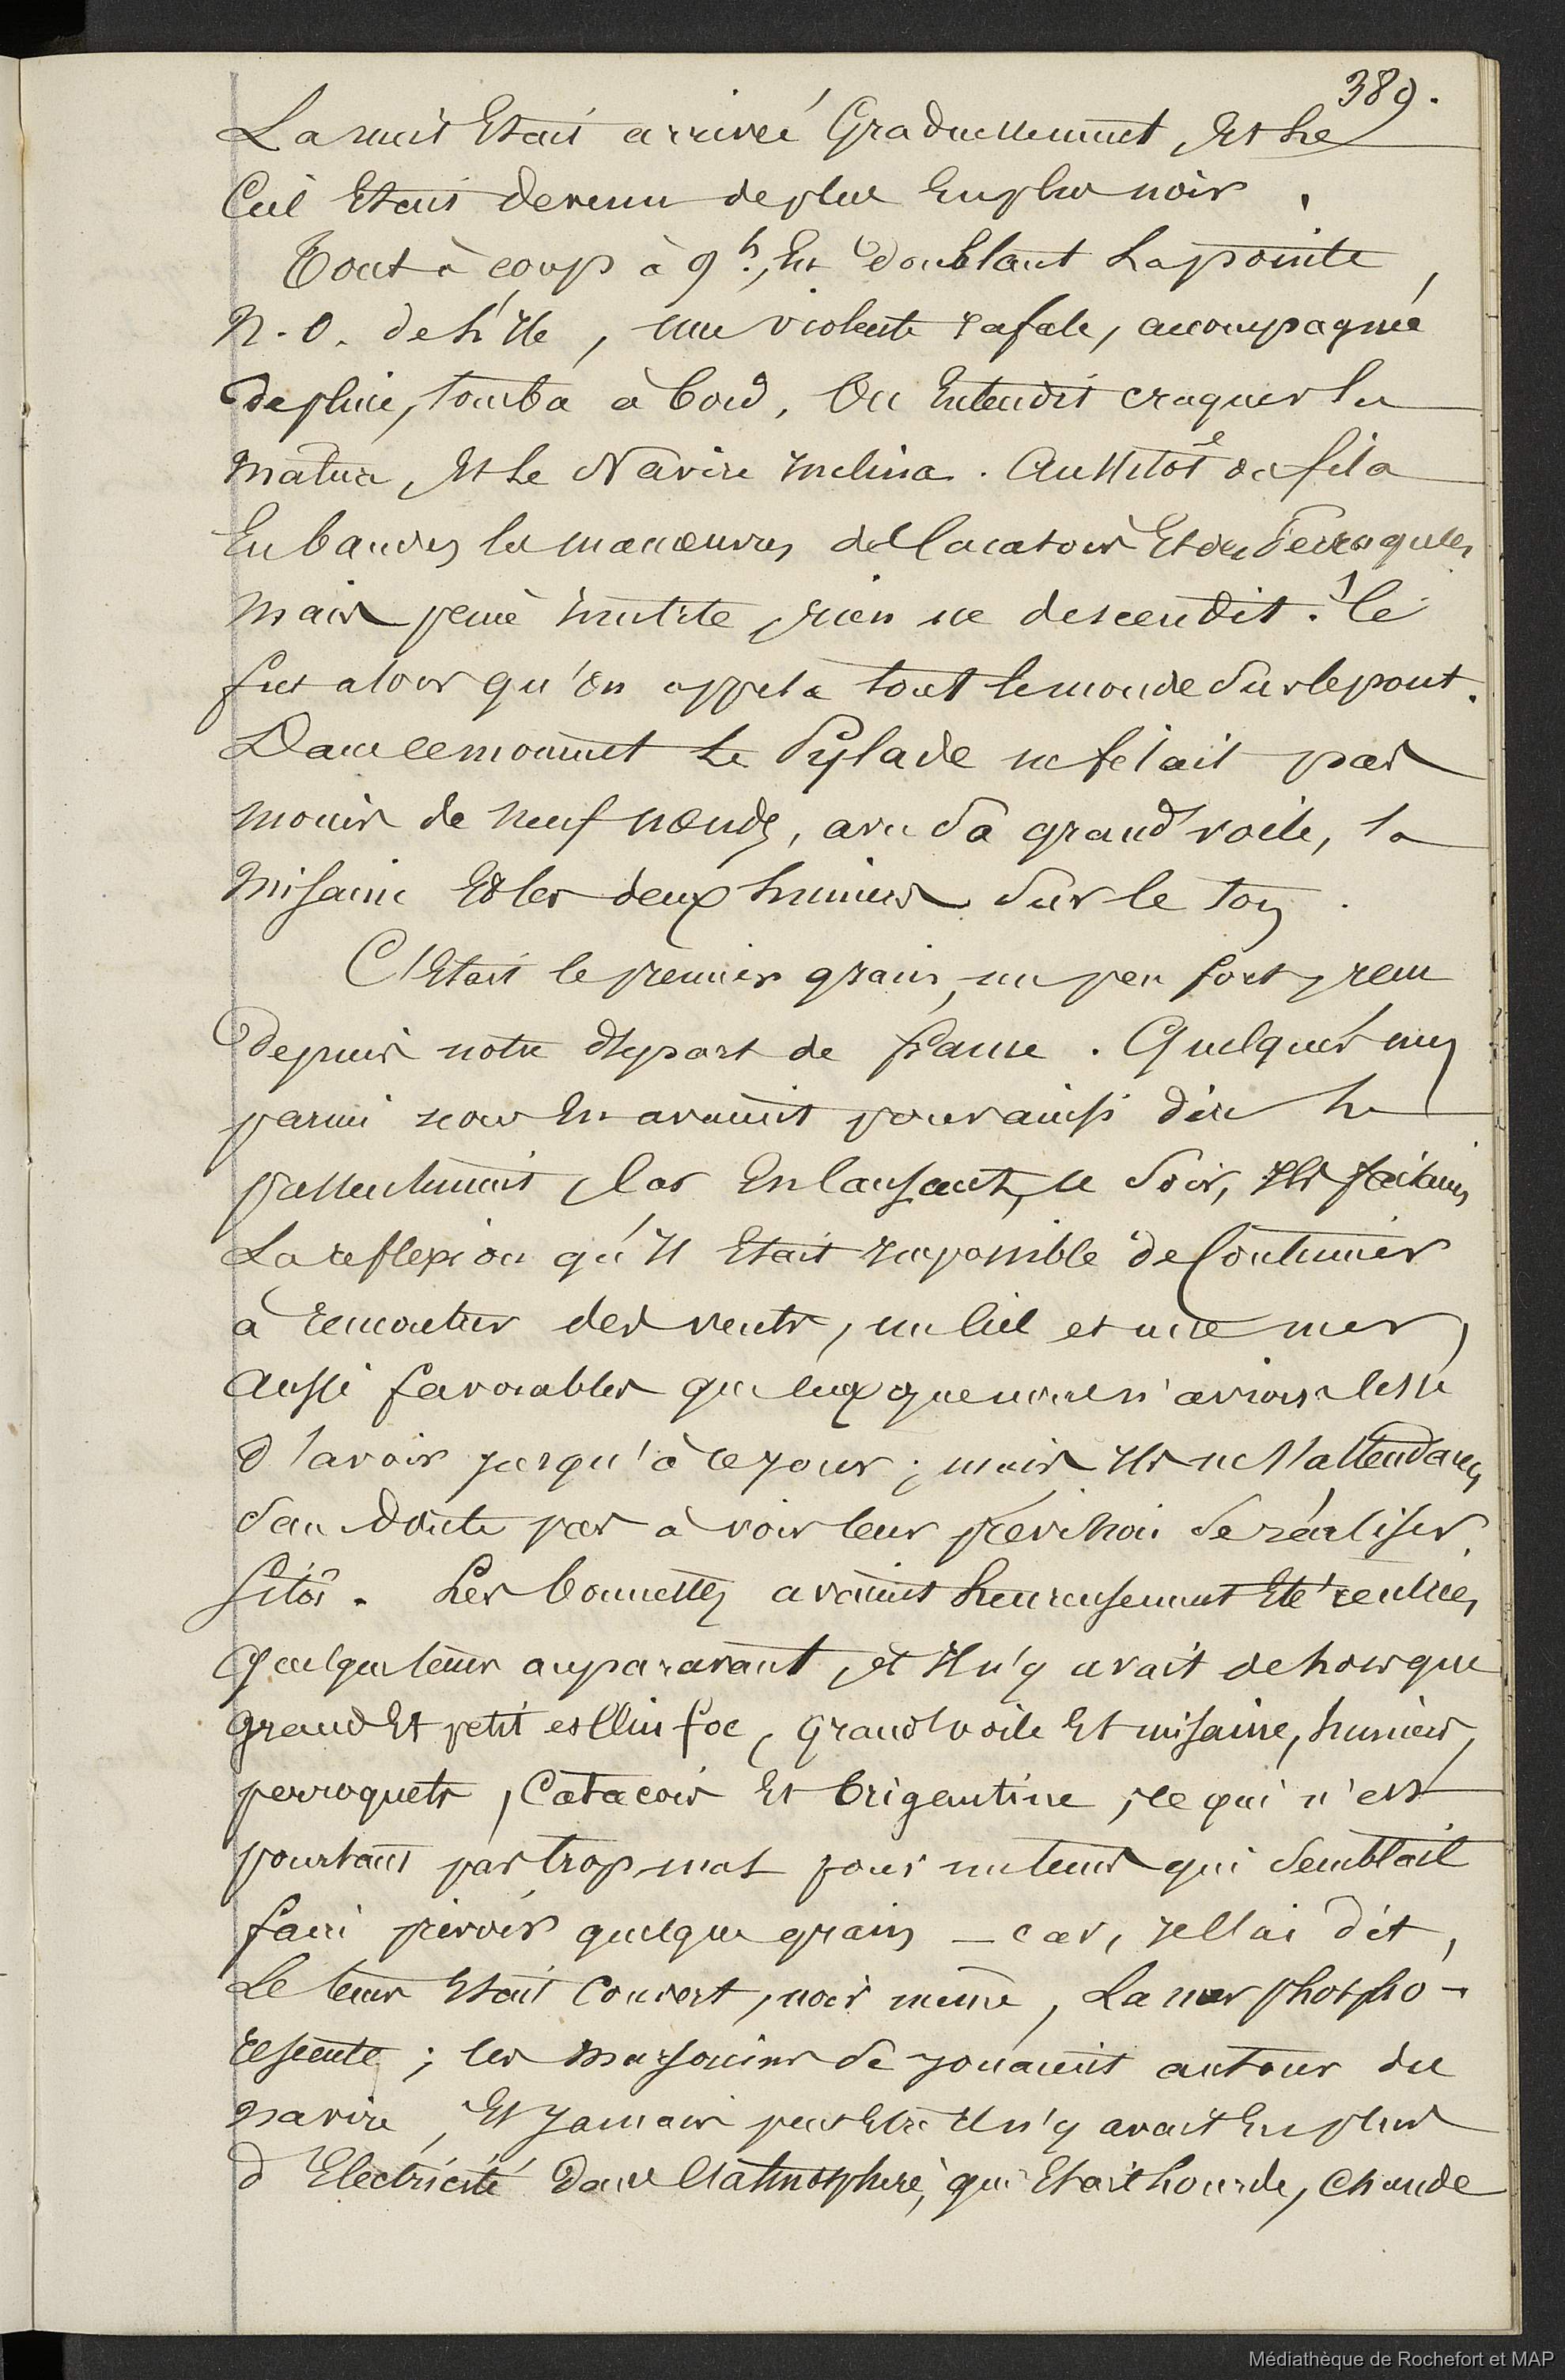 389.
La nuit Etait arrivée Graduellement, Et Le
Ciel Etait devenu de plus En plus noir.
Tout à coup à 9h., En doublant La pointe
N. O. de L'Ile, une violente rafale, accompagnée
de pluie, tomba à bord. On Entendit craquer la
mâture, Et Le Navire Inclina. Aussitôt on fila
En bandes les manœuvres des Cacatois Et des Perroquets
mais peine Inutile, rien ne descendit. Ce
fut alors qu'on appela tout le monde sur le pont.
Dans ce moment Le Pylade ne filait pas
moins de neuf nœuds, avec sa grand'voile, la
misaine Et les deux huniers sur le ton.
C'Etait le premier grain, un peu fort, reçu
depuis notre départ de france. Quelques uns
parmi nous En avaient pour ainsi dire Le
pressentiment, Car En causant, le soir, Ils faisaient
La reflexion qu'Il Etait Impossible de Continuer
à rencontrer des vents, un Ciel et une mer,
aussi favorables que ceux que nous n'avions cessé
d'avoir jusqu'à ce jour; mais Ils ne s'attendaient
sans doute pas à voir leur prévision se réaliser
sitôt. Les bonnettes avaient heureusement Eté rentrées
quelque tems auparavant, et Il n'y avait dehors que
grand Et petit et Clin foc, grand'voile Et misaine, huniers,
perroquets, Catacois Et brigantine, ce qui n'est
pourtant pas trop mal pour un tems qui semblait
faire prévoir quelque grain – car, je l'ai dit,
Le tems Etait Couvert, noir même, La mer phospho-
rescente; les marsouins se jouaient autour du
navire, Et Jamais peut Etre Il n'y avait En plus
d'Electricité dans l'atmosphère, qui Etait Lourde, chaude
Médiathèque de Rochefort et MAP